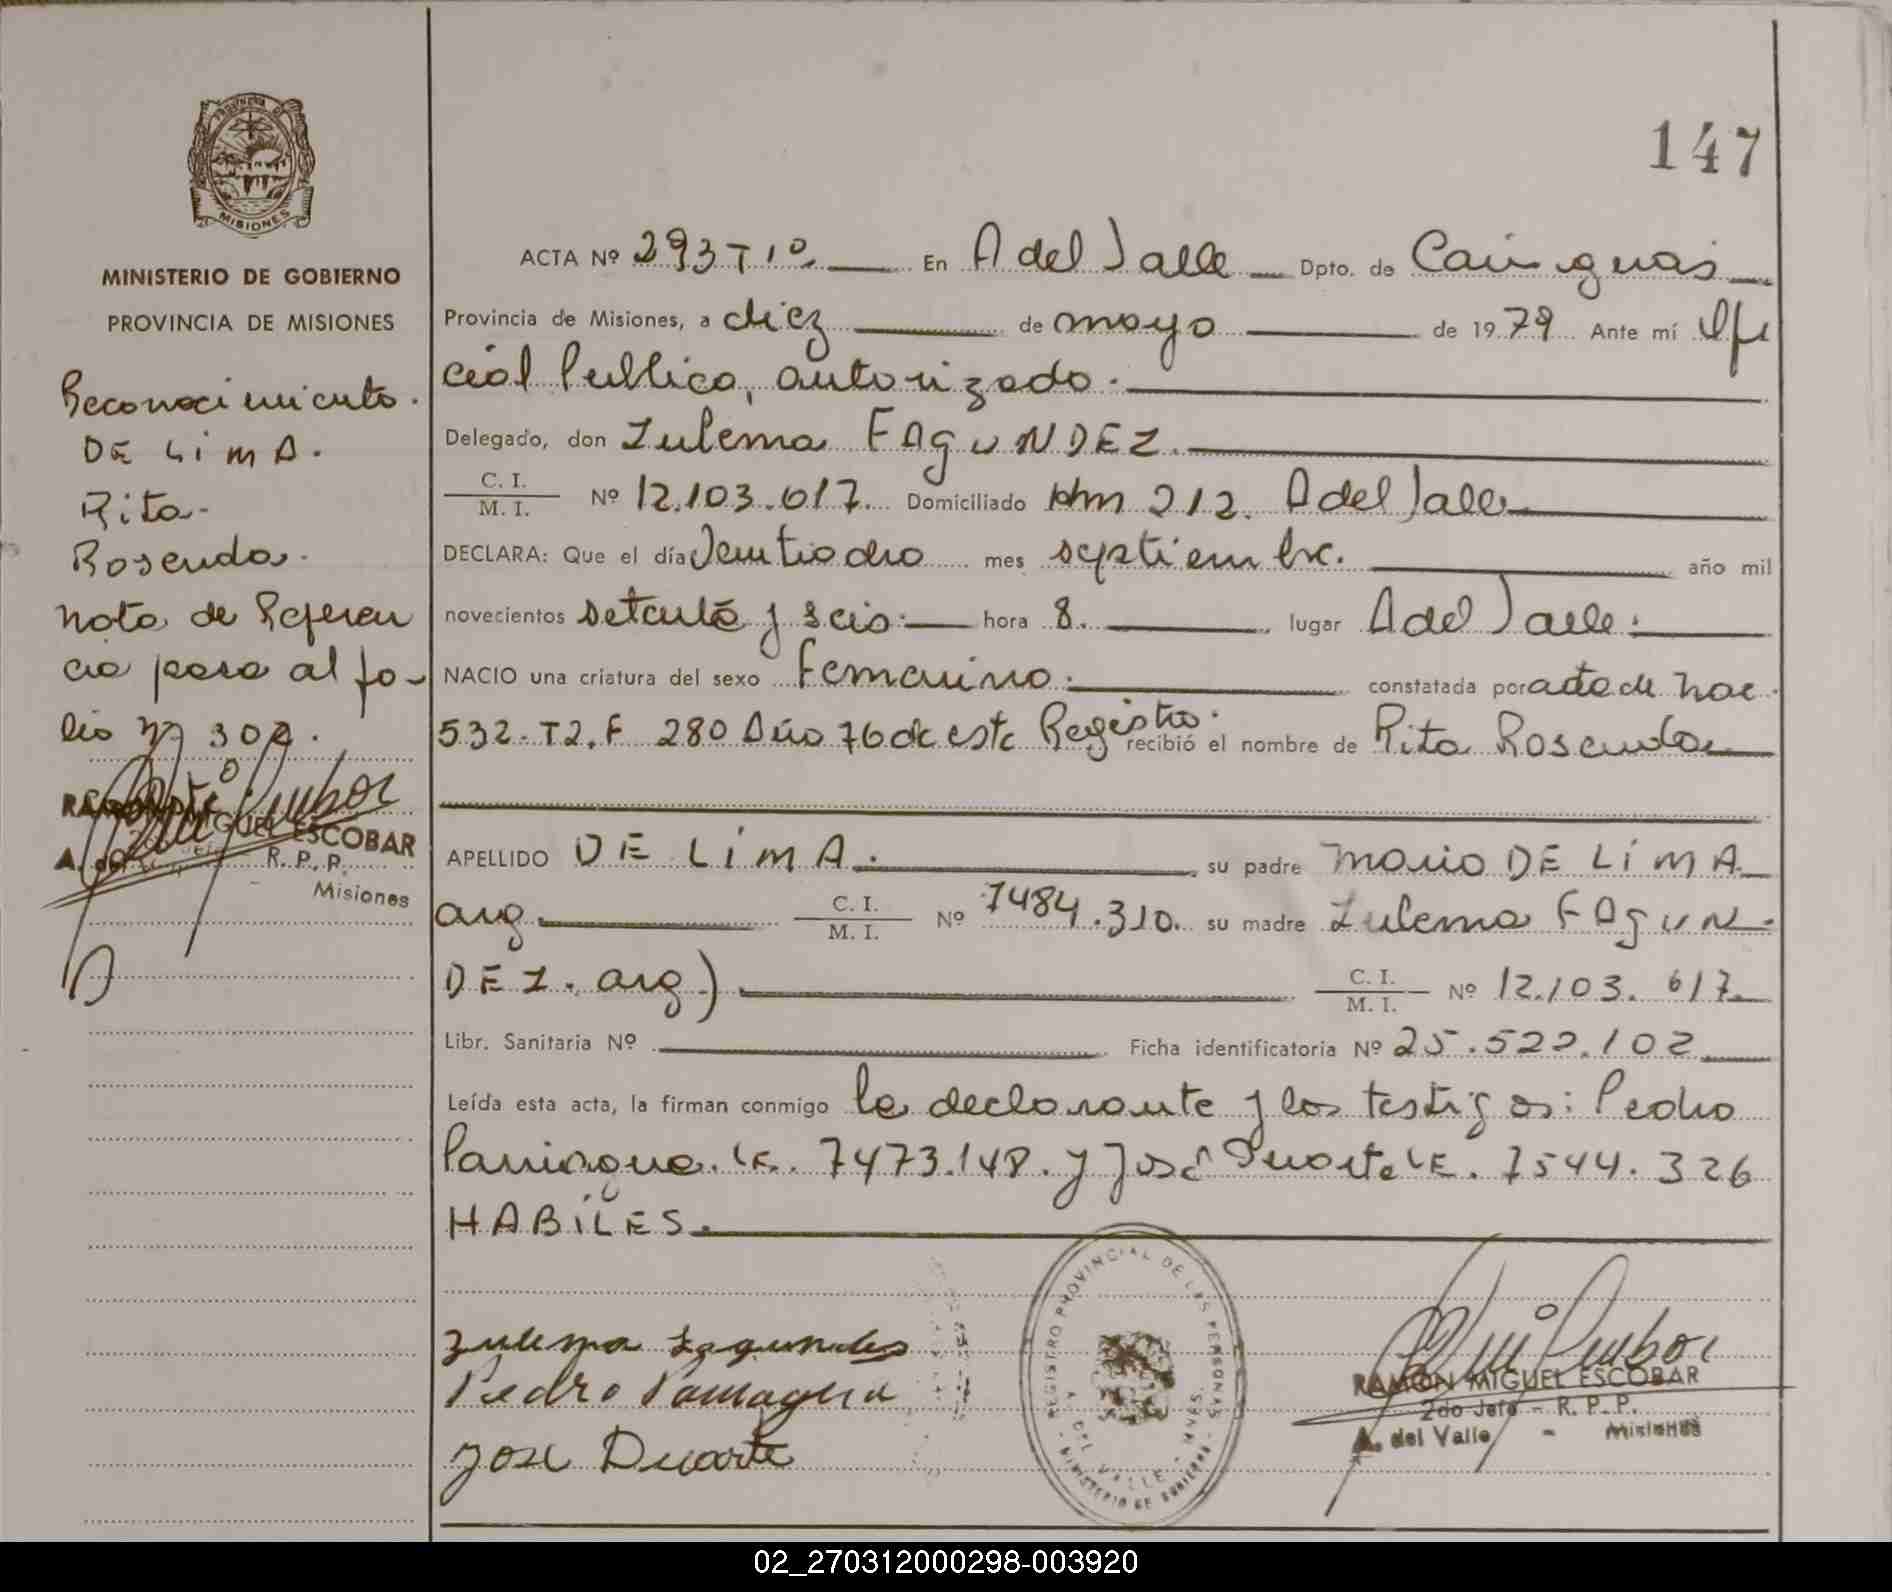 PROVINCIA DE
MISIONES
MINISTERIO DE GOBIERNO
PROVINCIA DE MISIONES
Reconocimiento.
DE LiMA.
Rita
Rosenda.
nota de Referen
cia pasa al fo-
lio nº 302.
RAMON MIGUEL ESCOBAR
R. P. P.
A. del
Misiones
147
ACTA Nº 293 T 1º. En A del Valle Dpto. de Cainguas
Provincia de Misiones, a diez de mayo de 1979 Ante mí Ofi
cial Publico, autorizado.
Delegado, don Zulema FAgUNDEZ.
C. I. / M. I. Nº 12.103.617. Domiciliado Km 212. A del Valle
DECLARA: Que el día Veintiocho mes septiembre. año mil
novecientos setenta y seis. hora 8. lugar A del Valle.
NACIO una criatura del sexo Femenino. constatada por acta de nac.
532. T2. F 280 Año 76 de este Registro. recibió el nombre de Rita Rosenda
APELLIDO DE LiMA. su padre Mario DE LiMA.
arg. C. I. / M. I. Nº 7484.310. su madre Zulema FAgUN-
DEZ. arg) C. I. / M. I. Nº 12.103.617.
Libr. Sanitaria Nº Ficha identificatoria Nº 25.522.102
Leída esta acta, la firman conmigo la declarante y los testigos: Pedro
Paniagua. LE. 7473.148. y José Duarte LE. 7544.326
HABiLES.
Zulema Fagundes
Pedro Paniagua
José Duarte
REGISTRO PROVINCIAL DE LAS PERSONAS
A. DEL VALLE - MNES.
MINISTERIO DE GOBIERNO
RAMON MIGUEL ESCOBAR
2do Jefe - R. P. P.
A. del Valle - Misiones
02_270312000298-003920